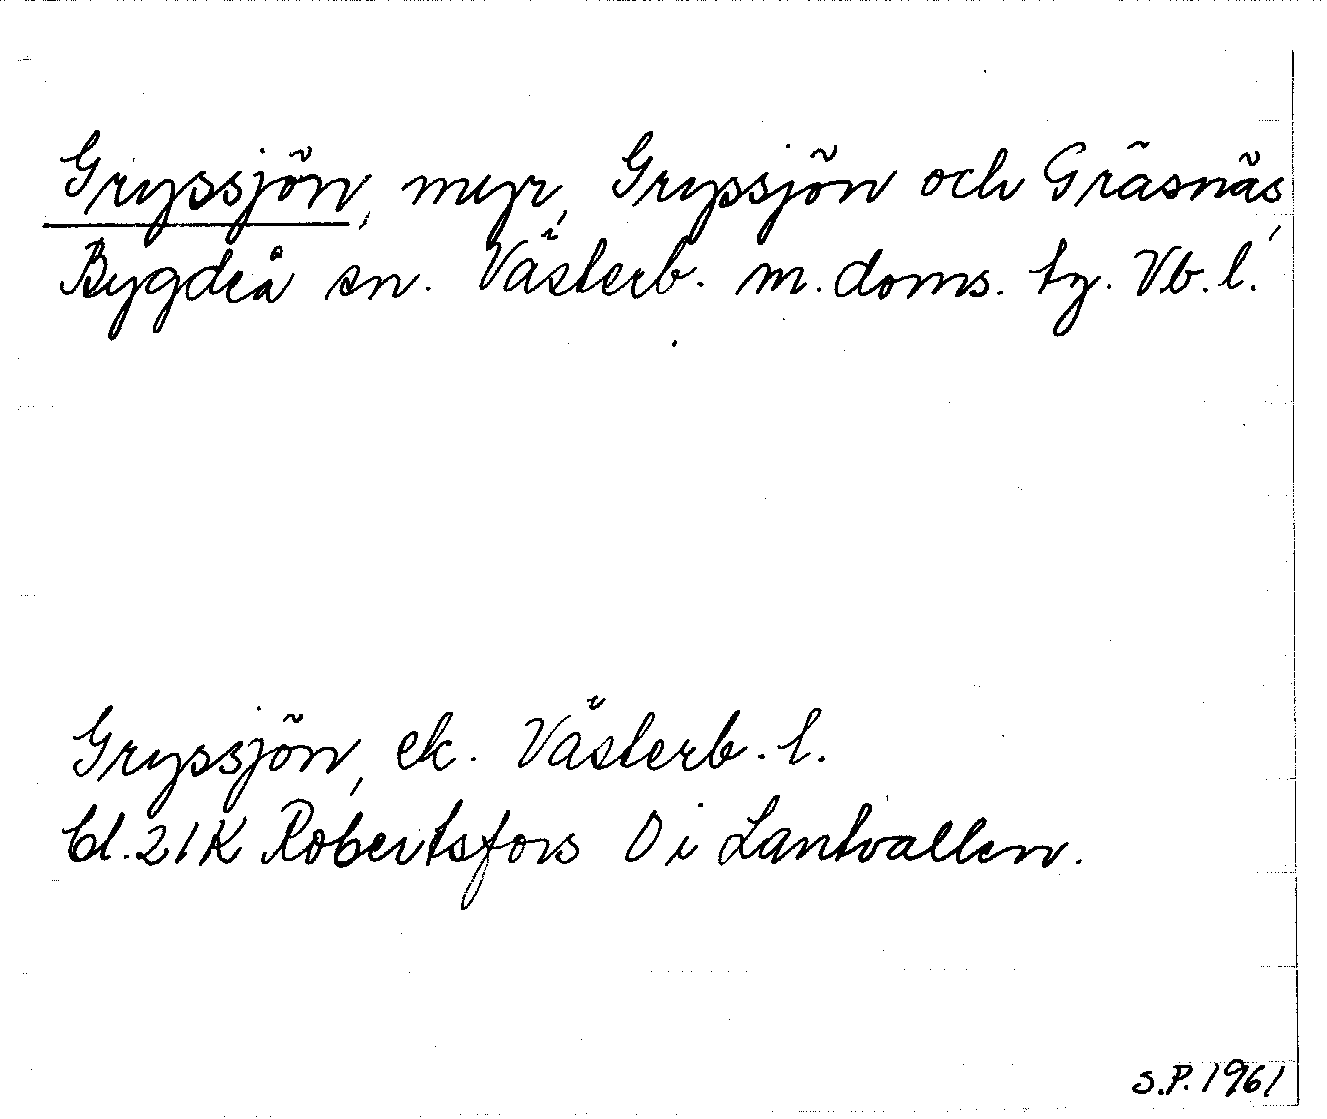 Gryssjön, myr, Gryssjön och Gräsnäs,
Bygdeå sn. Västerb. m. doms. tg. Vb. l.
Gryssjön, ek. Västerb. l.
bl. 21K Robertsfors O i Lantvallen.
S.P. 1961